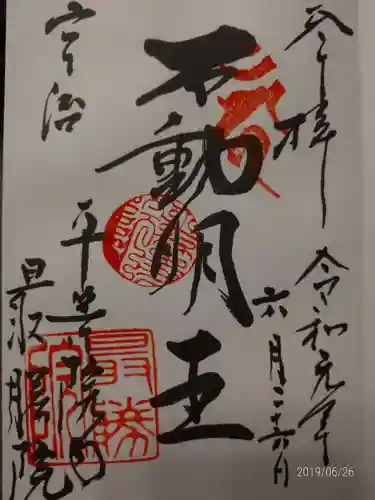 奉拝
令和元年
六月二十六日
不動明王
宇治
平等院内
最勝院
最勝院
2019/06/26